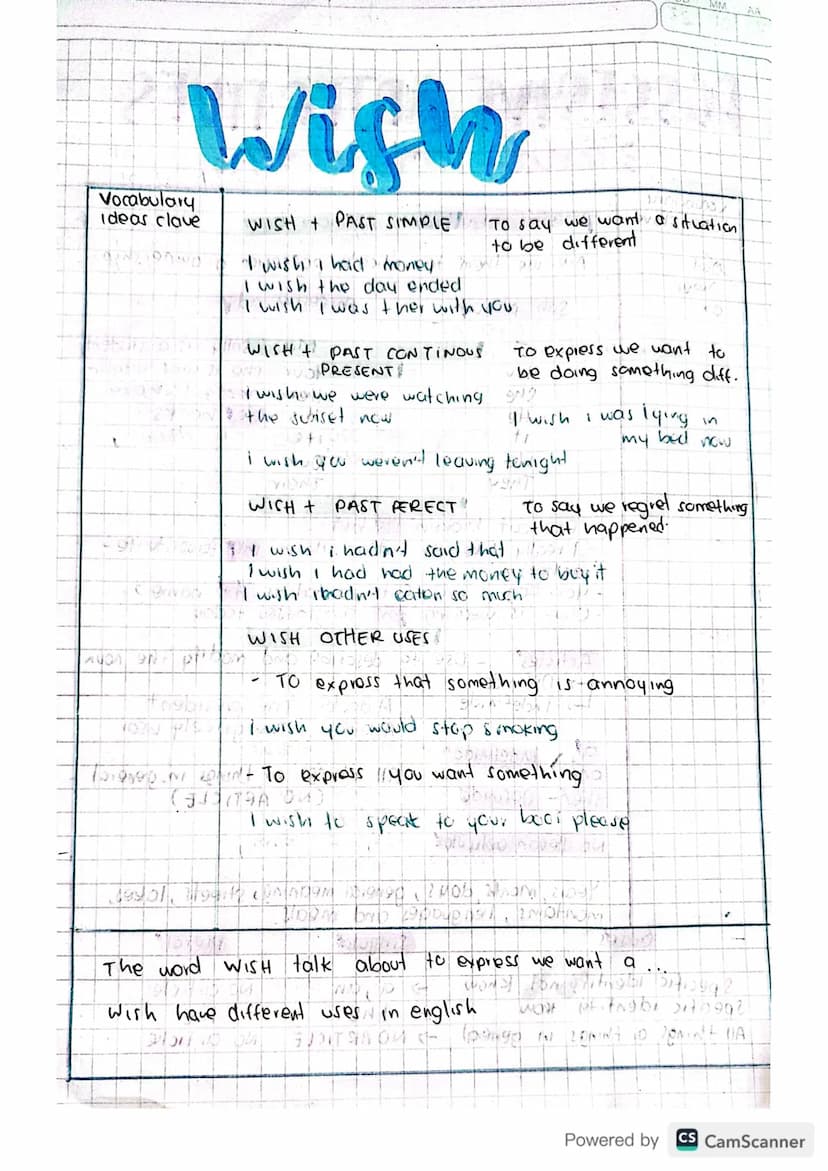 Wish
Vocabulary
ideas clave
WISH + PAST SIMPLE
To say we want a situation
to be different
I wish I had money
I wish the day ended
I wish I was ther with you
WISH + PAST CONTINOUS
PRESENT
To express we want to
be doing something diff.
I wish we were watching
the sunset now
I wish i was lying in
my bed now
i wish you weren't leaving tonight
WICH + PAST PERECT
To say we regret something
that happened.
I wish i hadn't said that
I wish I had had the money to buy it
I wish I hadn't eaten so much
WISH OTHER USES
- To express that something is annoying
i wish you would stop smoking
- To express you want something
I wish to speak to your please
The word WISH talk about to express we want a ...
Wish have different uses in english
Powered by CS CamScanner